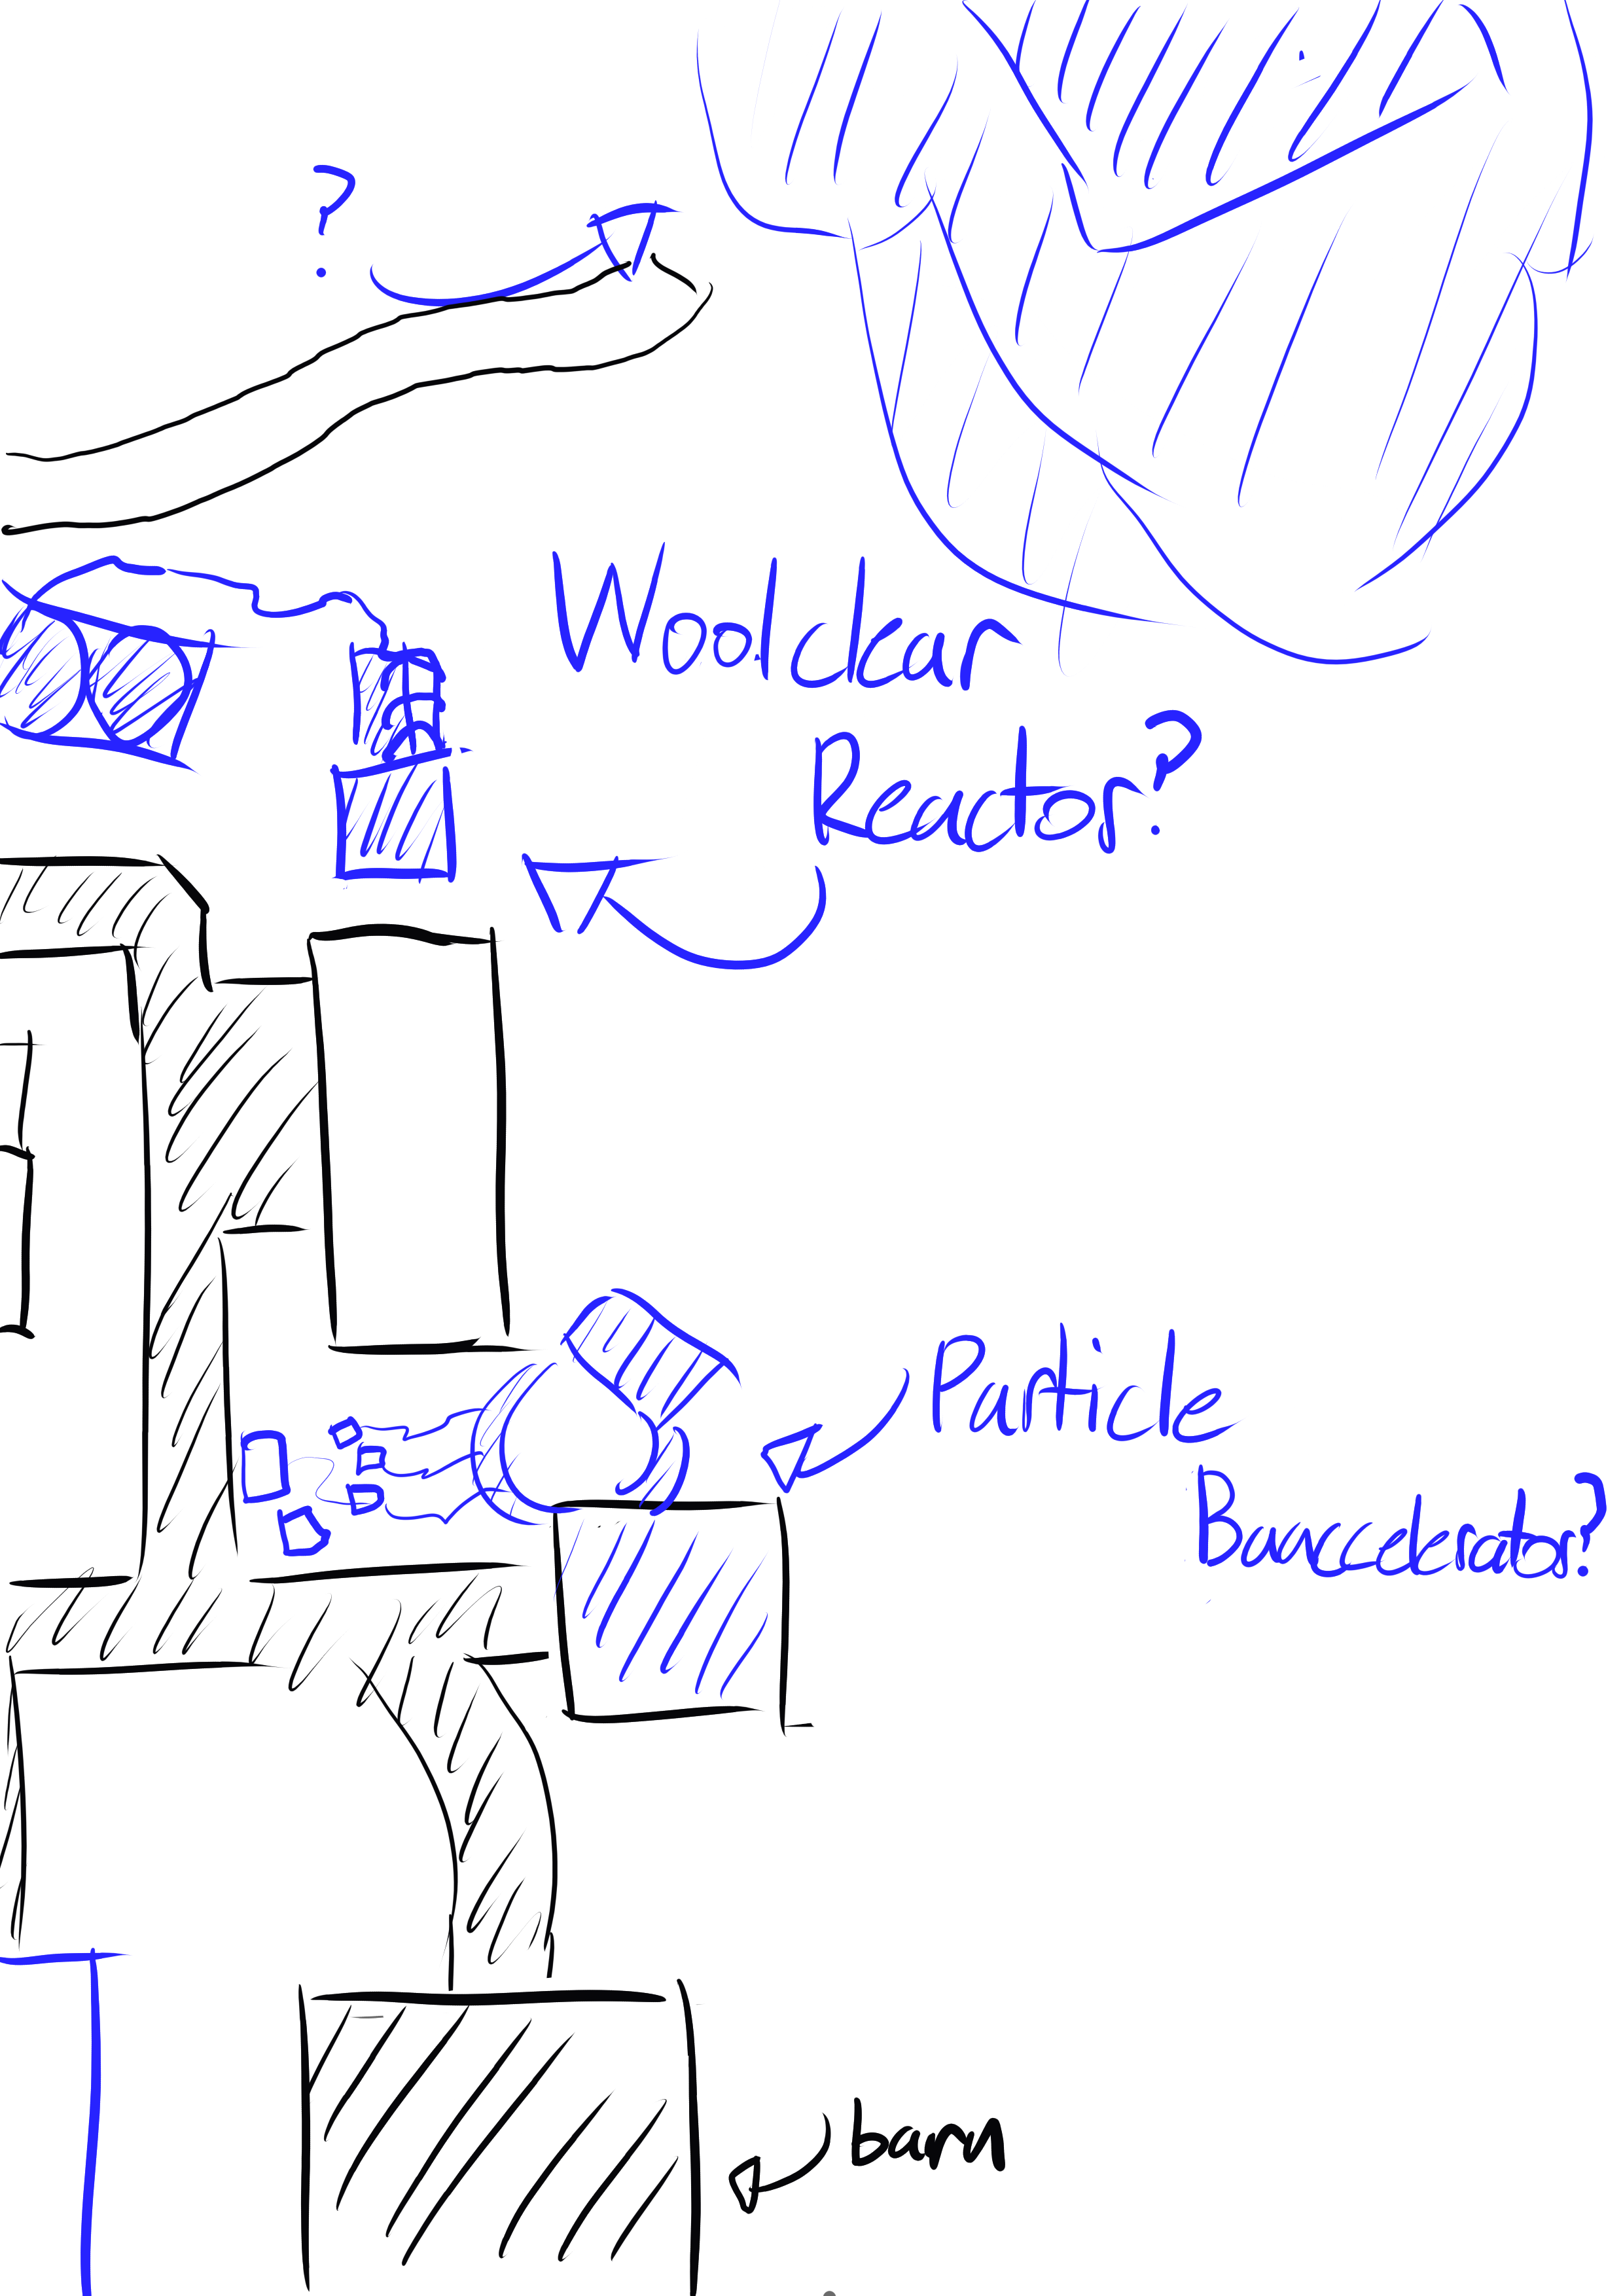 ?
Woolclear
Reactor?
Particle
Baaccelerator?
barn